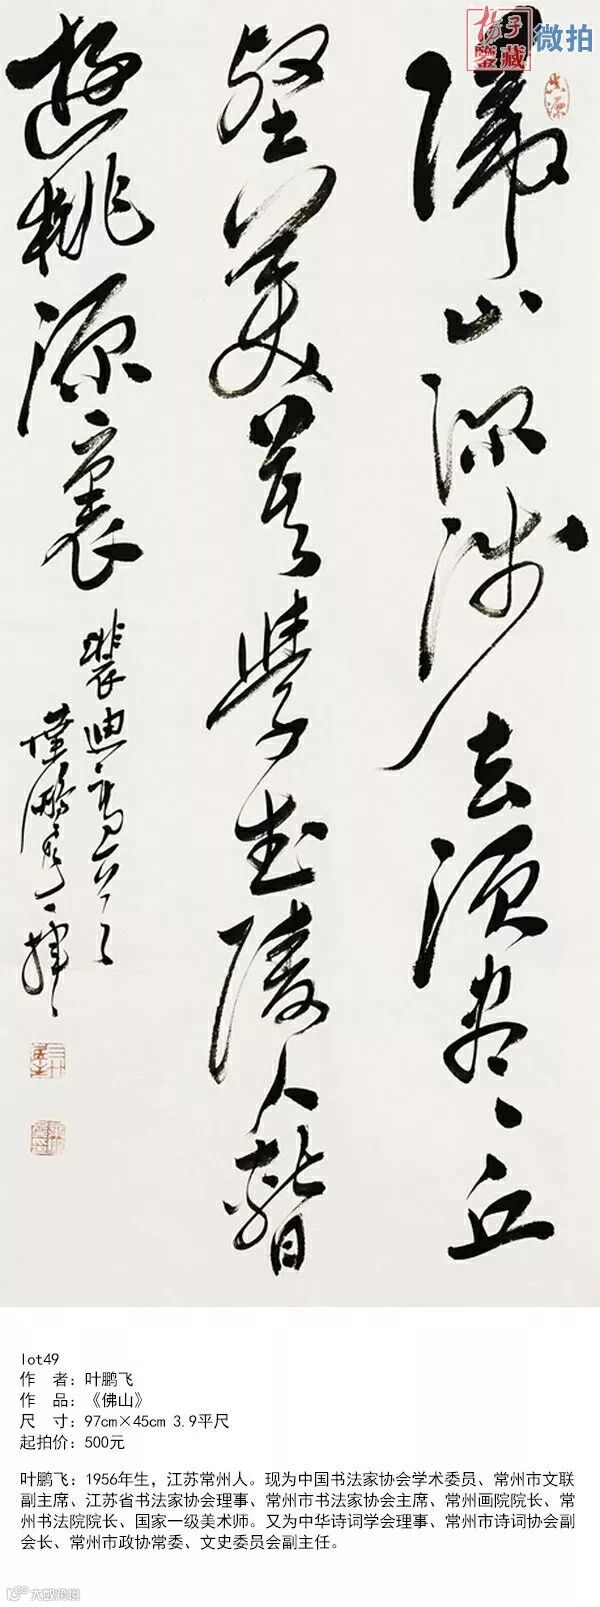 扬子
鑒藏
微拍
歸山深浅去須盡丘
壑美莫學武陵人暫
遊桃源裏
裴迪
lot49
作　者：叶鹏飞
作　品：《佛山》
尺　寸：97cm×45cm 3.9平尺
起拍价：500元
叶鹏飞：1956年生，江苏常州人。现为中国书法家协会学术委员、常州市文联
副主席、江苏省书法家协会理事、常州市书法家协会主席、常州画院院长、常
州书法院院长、国家一级美术师。又为中华诗词学会理事、常州市诗词协会副
会长、常州市政协常委、文史委员会副主任。
大数跨境